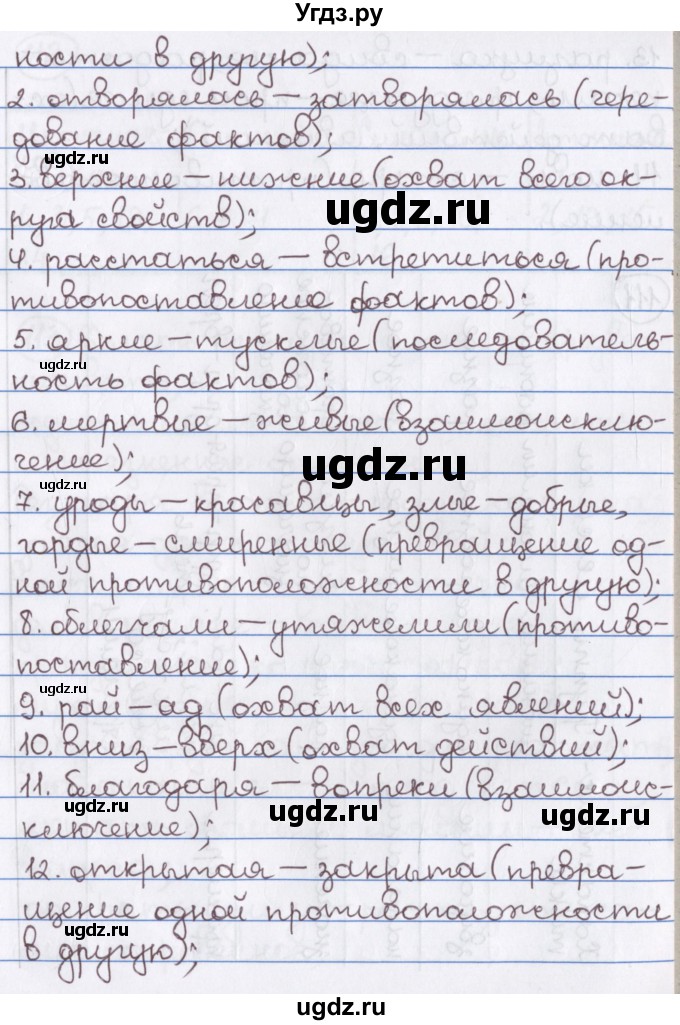 Угдз.ру
ности в другую);
2. отворялась – затворялась (чере-
дование фактов);
ugdz.ru
3. верхние – нижние (охват всего ок-
ugdz.ru
руга свойств);
ugdz.ru
4. расстаться – встретиться (про-
тивопоставление фактов);
ugdz.ru
5. яркие – тусклые (последователь-
ность фактов);
6. мертвые – живые (взаимоисклю-
чение);
ugdz.ru
ugdz.ru
7. уроды – красавицы, злые – добрые,
гордые – смиренные (превращение од-
ной противоположности в другую);
8. облегчали – утяжелили (противо-
поставление);
ugdz.ru
9. рай – ад (охват всех явлений);
10. вниз – вверх (охват действий);
11. благодаря – вопреки (взаимоис-
ugdz.ru
ugdz.ru
ugdz.ru
ключение);
12. открытая – закрыта (превра-
щение одной противоположности
ugdz.ru
в другую);
ugdz.ru